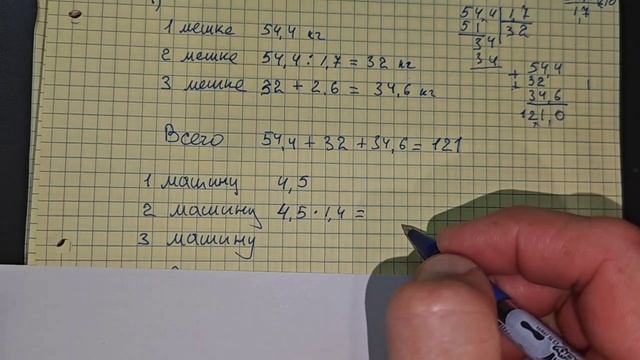 1)
1 мешке 54,4 кг
2 мешке 54,4 : 1,7 = 32 кг
3 мешке 32 + 2,6 = 34,6 кг
Всего 54,4 + 32 + 34,6 = 121
1 машину 4,5
2 машину 4,5 · 1,4 =
3 машину
54,4 | 1,7
51 | 32
34
34
+ 54,4
+ 32
34,6
121,0
1,7